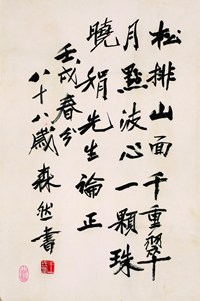 松排山面千重翠
月點波心一顆珠
曉絹先生論正
壬戌春分
八十八歲森然書